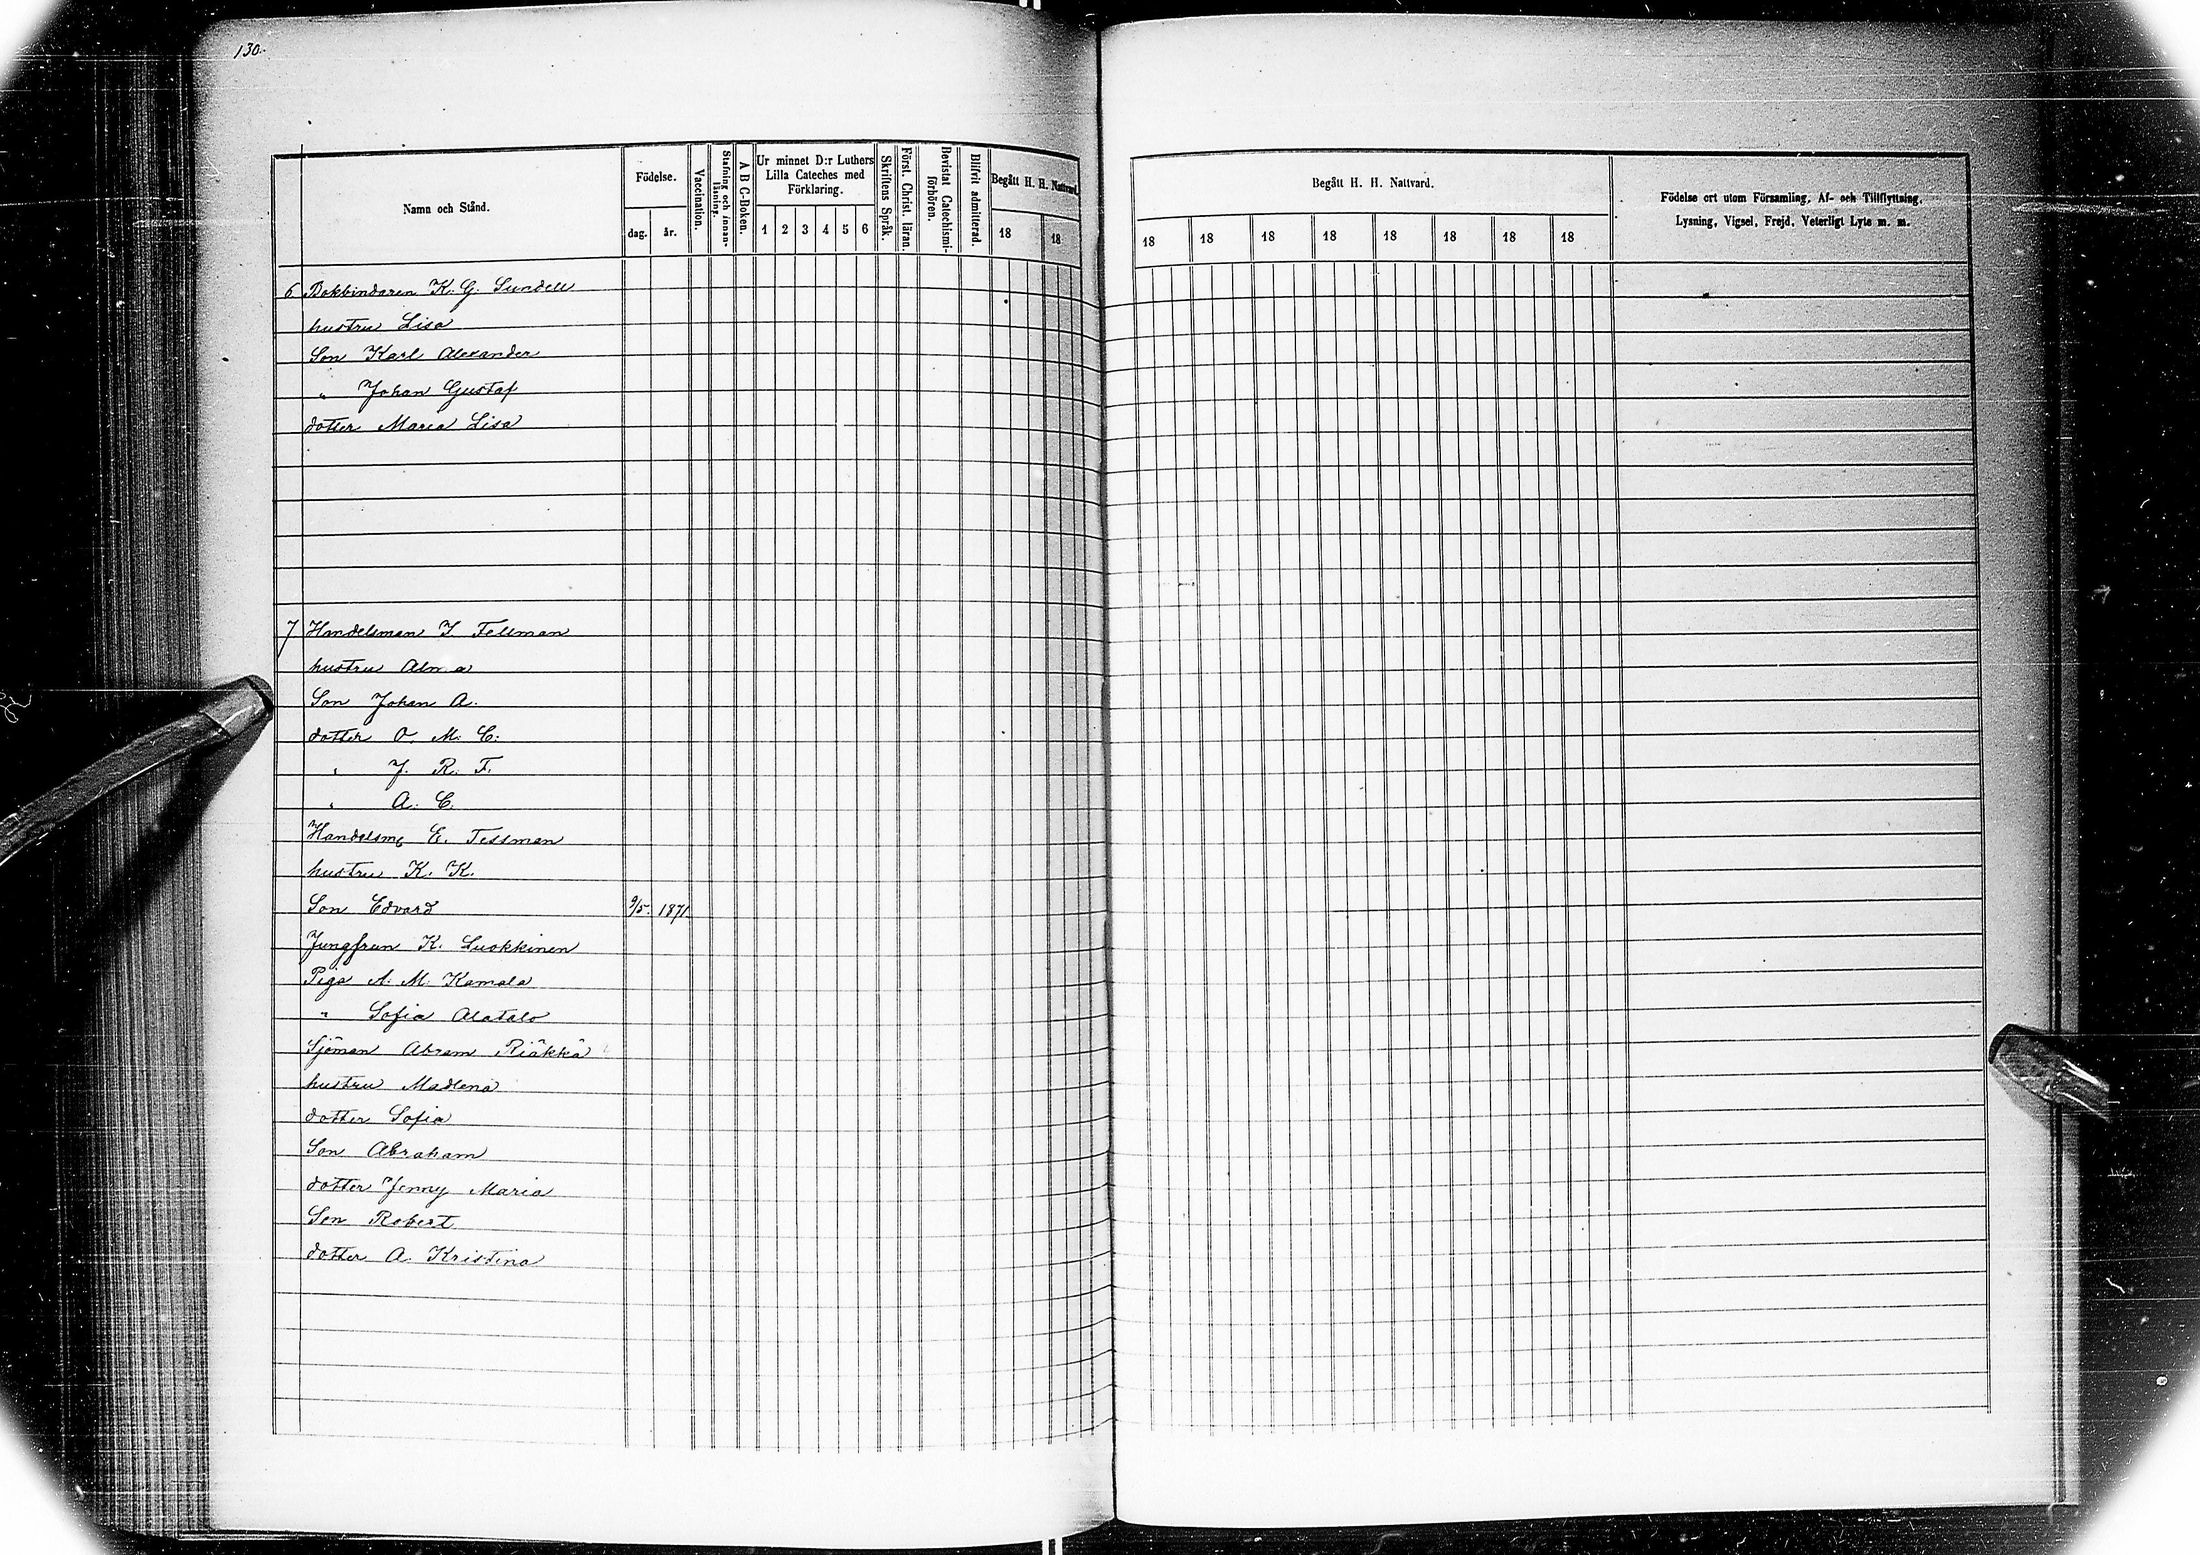 130.
Namn och Stånd.
Födelse.
dag. år.
Vaccination.
Stafning och innanläsning.
A B C-Boken.
Ur minnet D:r Luthers
Lilla Cateches med
Förklaring.
1 2 3 4 5 6
Skriftens Språk.
Först. Christ. läran.
Bevistat Catechismiförhören.
Blifvit admitterad.
Begått H. H. Nattvard.
18 18
Begått H. H. Nattvard.
18 18 18 18 18 18 18 18
Födelse ort utom Församling, Af- och Tillflyttning,
Lysning, Vigsel, Frejd, Veterligt Lyte m. m.
6 Bokbindaren K. G. Sundell
hustru Lisa
Son Karl Alexander
" Johan Gustaf
dotter Maria Lisa
7 Handelsman J Fellman
hustru Alma
Son Johan A.
dotter O. M. C.
" J. R. F.
" A. C.
Handelsm E. Fellman
hustru K. K.
Son Edvard 9/5. 1871
Jungfrun K. Luokkinen
Piga A. M. Kamala
" Sofia Alatalo
Sjöman Abram Riäkkä
hustru Madlena
dotter Sofia
Son Abraham
dotter Jenny Maria
Son Robert
dotter A. Kristina